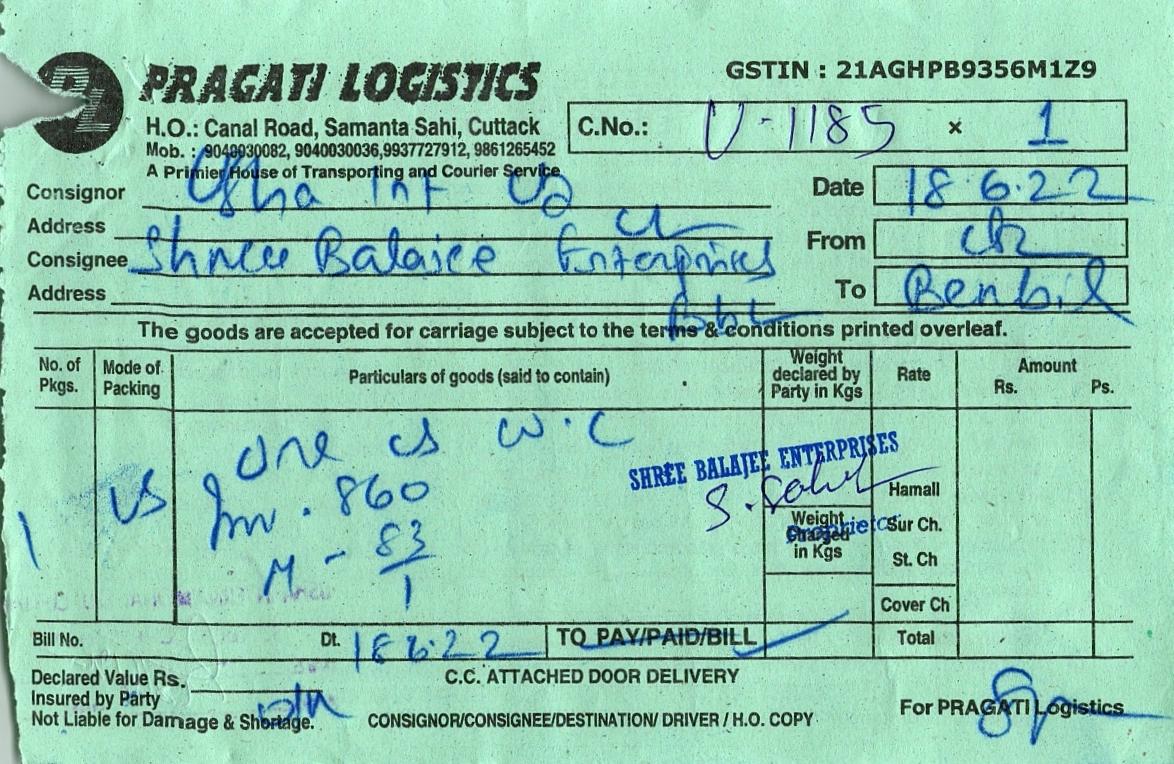 PRAGATI LOGISTICS
GSTIN : 21AGHPB9356M1Z9
H.O.: Canal Road, Samanta Sahi, Cuttack
C.No.: U-1185 x 1
Mob. : 9040030082, 9040030036,9937727912, 9861265452
A Primier House of Transporting and Courier Service
Consignor Usha Int
Date 18.6.22
Address
From
Consignee Shree Balajee Enterprises
Address
To Benbil
The goods are accepted for carriage subject to the terms & conditions printed overleaf.
No. of Pkgs.
Mode of Packing
Particulars of goods (said to contain)
Weight declared by Party in Kgs
Rate
Amount
Rs. Ps.
1
one cs w.c
Inv. 860
M - 83/1
SHREE BALAJEE ENTERPRISES
Proprietor
Weight Charged in Kgs
Hamall
Sur Ch.
St. Ch
Cover Ch
Bill No. Dt. 18 6.22 TO PAY/PAID/BILL Total
Declared Value Rs.
C.C. ATTACHED DOOR DELIVERY
Insured by Party
Not Liable for Damage & Shortage.
CONSIGNOR/CONSIGNEE/DESTINATION/ DRIVER / H.O. COPY
For PRAGATI Logistics